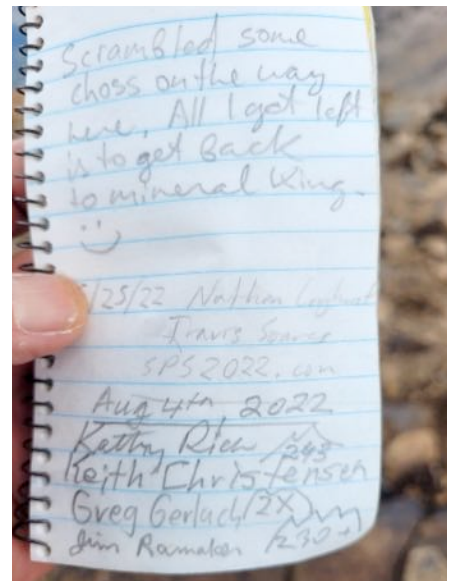 Scrambled some
choss on the way
here. All I got left
is to get Back
to mineral King.
:)
/25/22 Nathan
Travis Soares
SPS2022.com
Aug 4th, 2022
Kathy Rich /243
Keith Christensen
Greg Gerlach /2X
Jim Ramaker /230+